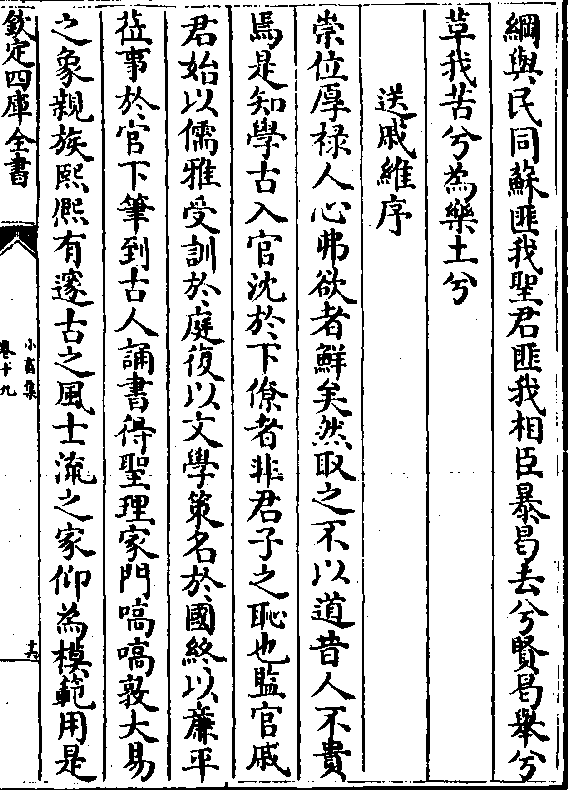 綱與民同蘇匪我聖君匪我相臣暴曷去兮賢曷舉兮
草我苦兮為樂土兮
送戚維序
崇位厚祿人心弗欲者鮮矣然取之不以道昔人不貴
焉是知學古入官沈於下僚者非君子之恥也監官戚
君始以儒雅受訓於庭復以文學策名於國終以亷平
莅事於官下筆到古人誦書得聖理家門嗃嗃敦大易
之象親族熙熙有邃古之風士流之家仰為模範用是
欽定四庫全書
小畜集
卷十九
十六